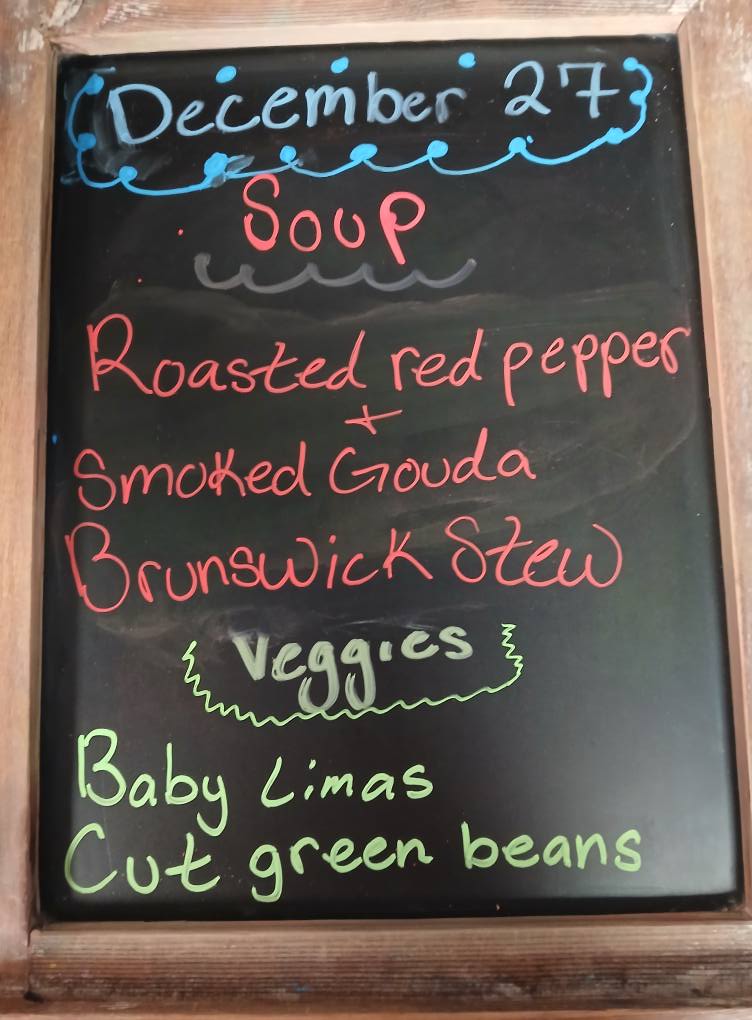 December 27
Soup
Roasted red pepper
+
Smoked Gouda
Brunswick Stew
Veggies
Baby Limas
Cut green beans